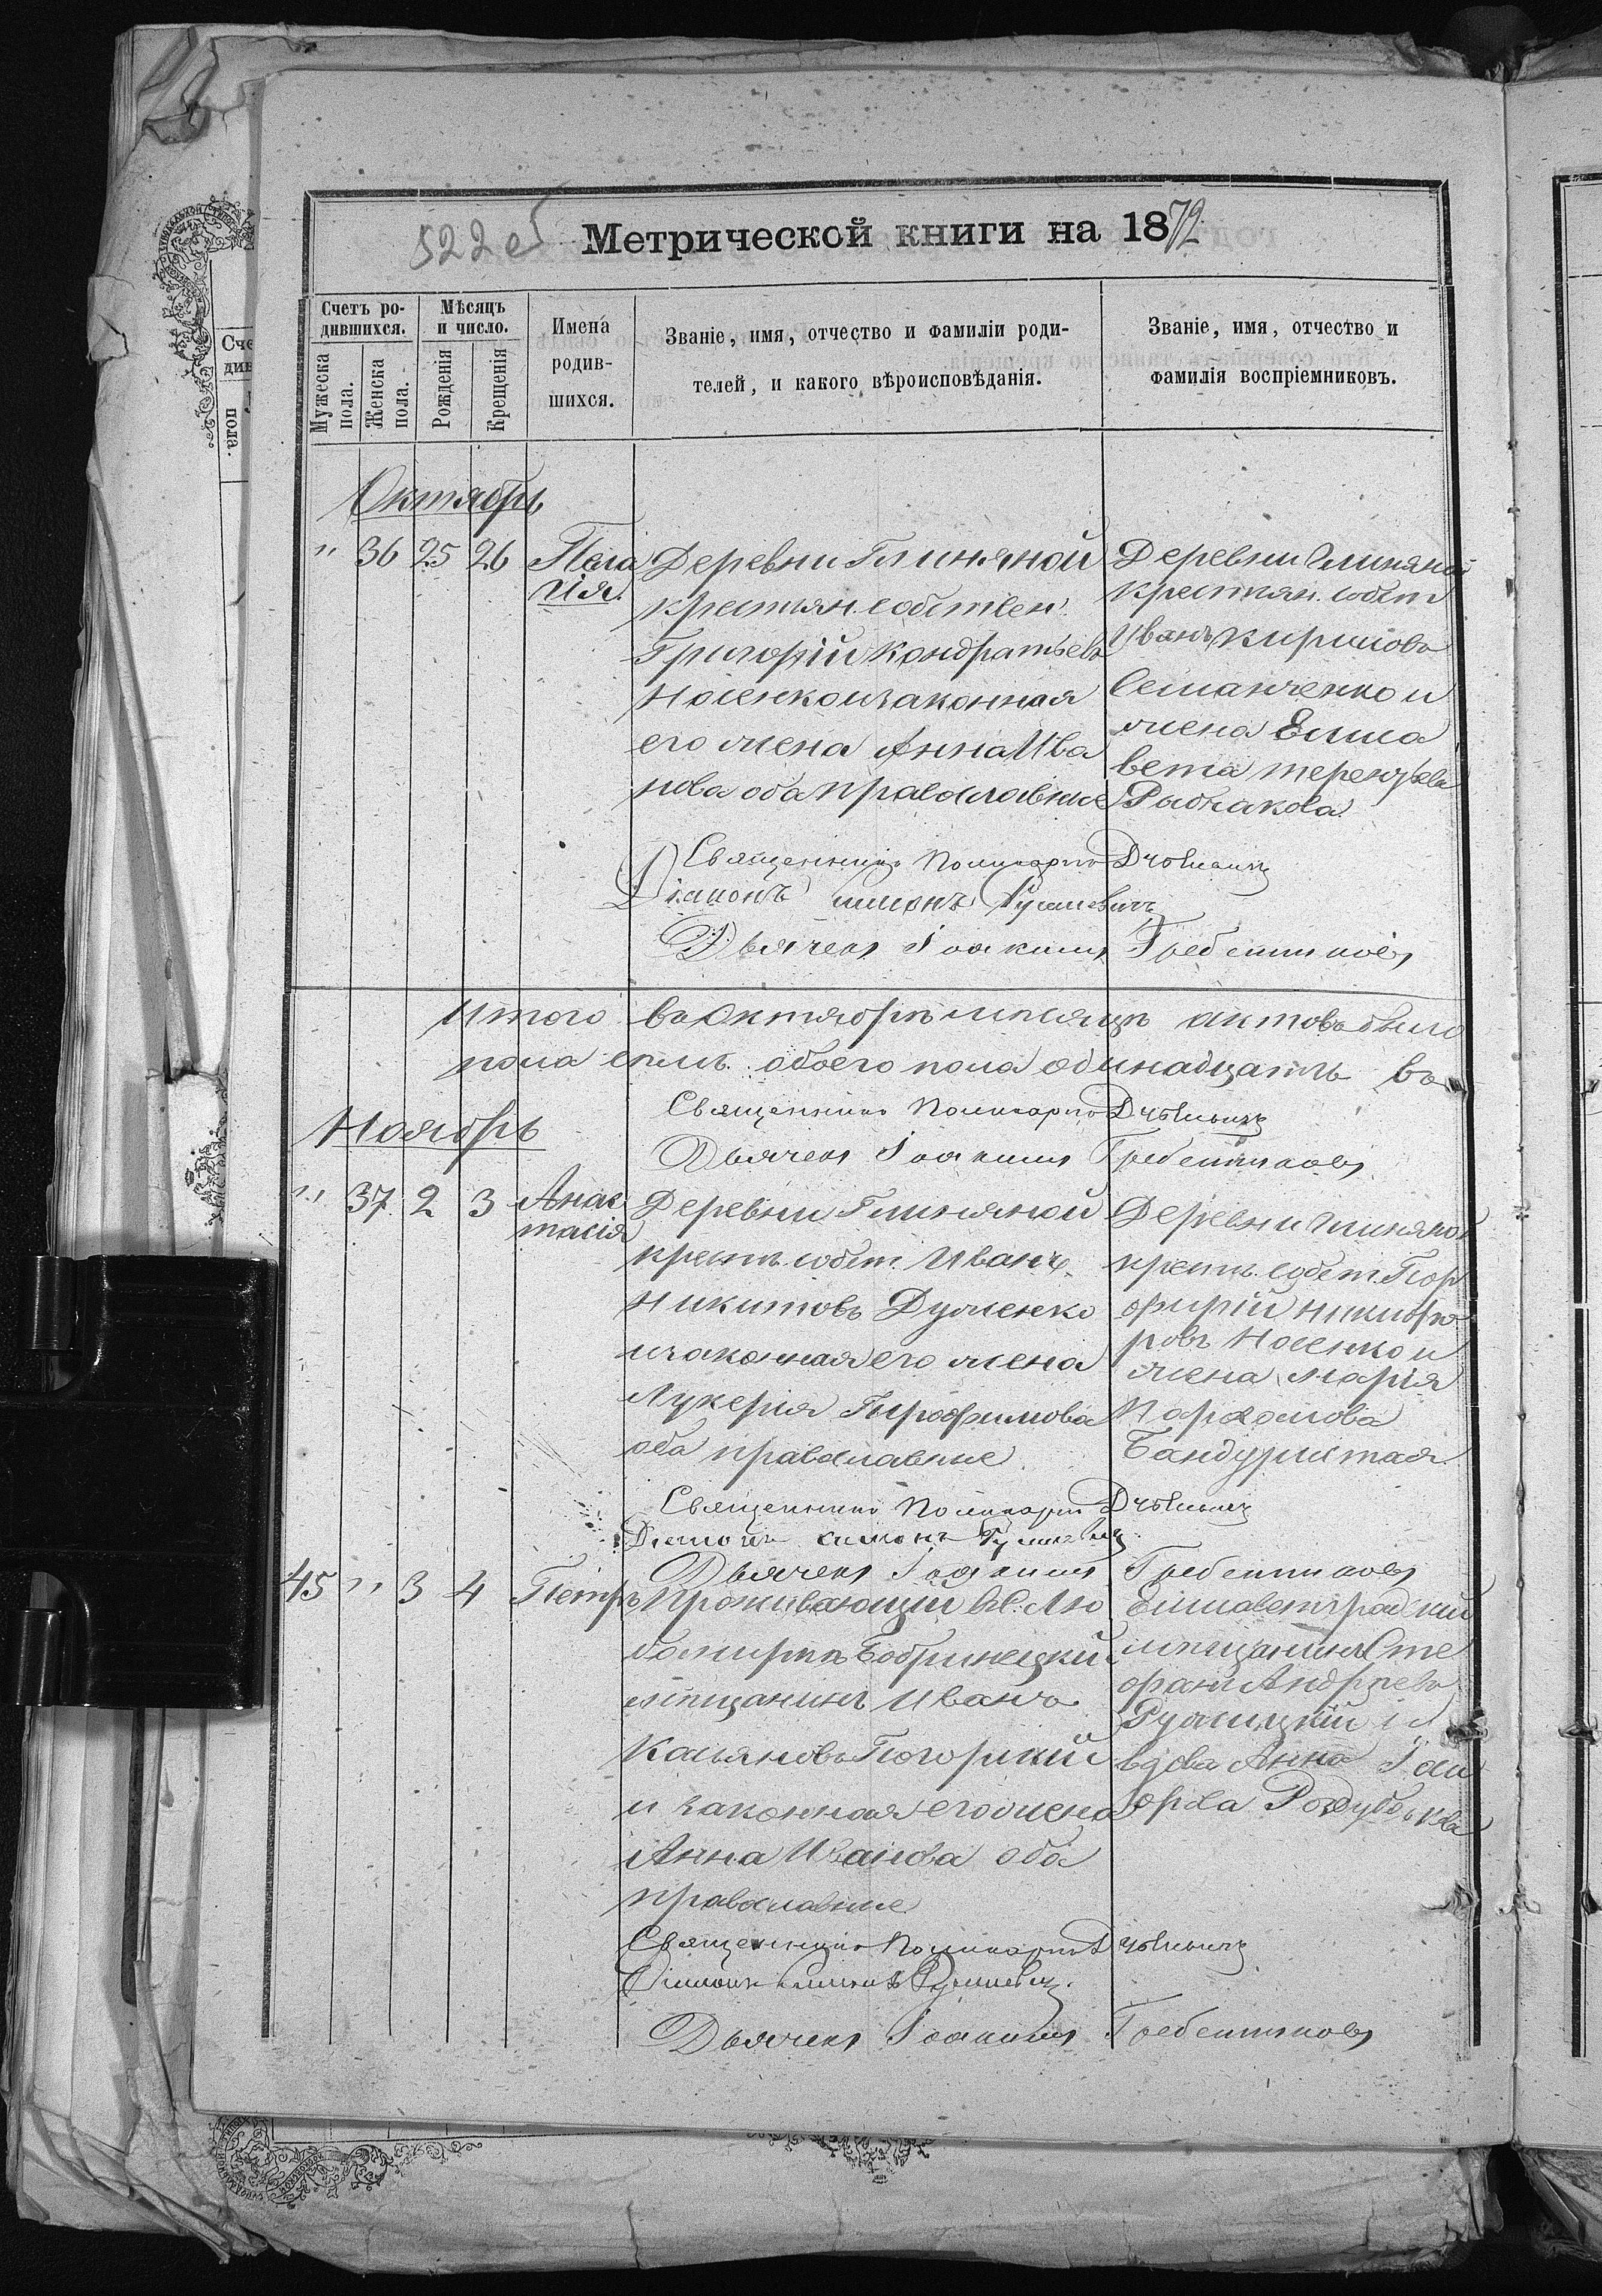 522 об
Метрической книги на 1872
Счетъ родившихся.
Мѣсяцъ и число.
Мужеска пола.
Женска пола.
Рожденія
Крещенія
Имена родившихся.
Званіе, имя, отчество и фамиліи родителей, и какого вѣроисповѣданія.
Званіе, имя, отчество и фамилія воспріемниковъ.
Октябрь
" 36 25 26 Пелагія.
Деревни Глиняной
крестьян. собствен.
Григорій Кондратьевъ
Носенко и законная
его жена Анна Ива
нова оба православные
Деревни Глиняной
крестьян. собст
Иванъ Кириловъ
Семанченко и
жена Елиса
вета Терентьева
Рыбакова
Священникъ Поликарпъ
Діаконъ Симонъ
Дьячекъ Іоакимъ Гребенниковъ
Итого въ Октябрѣ мѣсяцѣ актовъ было
пола семь. обоего пола одинадцать въ
Священникъ Поликарпъ
Дьячекъ Іоакимъ Гребенниковъ
Ноябрь
" 37 2 3 Анастасія
Деревни Глиняной
крестьян. собст. Иванъ
Никитовъ Дуженко
и законная его жена
Лукерія Трофимова
оба православные
Деревни Глиняной
крестьян. собст. Пор
фирій Никифо
ровъ Носенко и
жена Марія
Пархомова
Бандуристая.
Священникъ Поликарпъ
Діаконъ Симонъ
Дьячекъ Іоакимъ Гребенниковъ
45 " 3 4 Петръ
Проживающій в с. Лю
бомиркѣ Бобринецкій
мѣщанинъ Иванъ
Касьяновъ Погорѣлий
и законная его жена
Анна Иванова оба
православные
Елисаветградскій
мѣщанинъ Сте
фанъ Андреевъ
Ружицкій и
вдова Анна
Священникъ Поликарпъ
Діаконъ Симонъ
Дьячекъ Іоакимъ Гребенниковъ